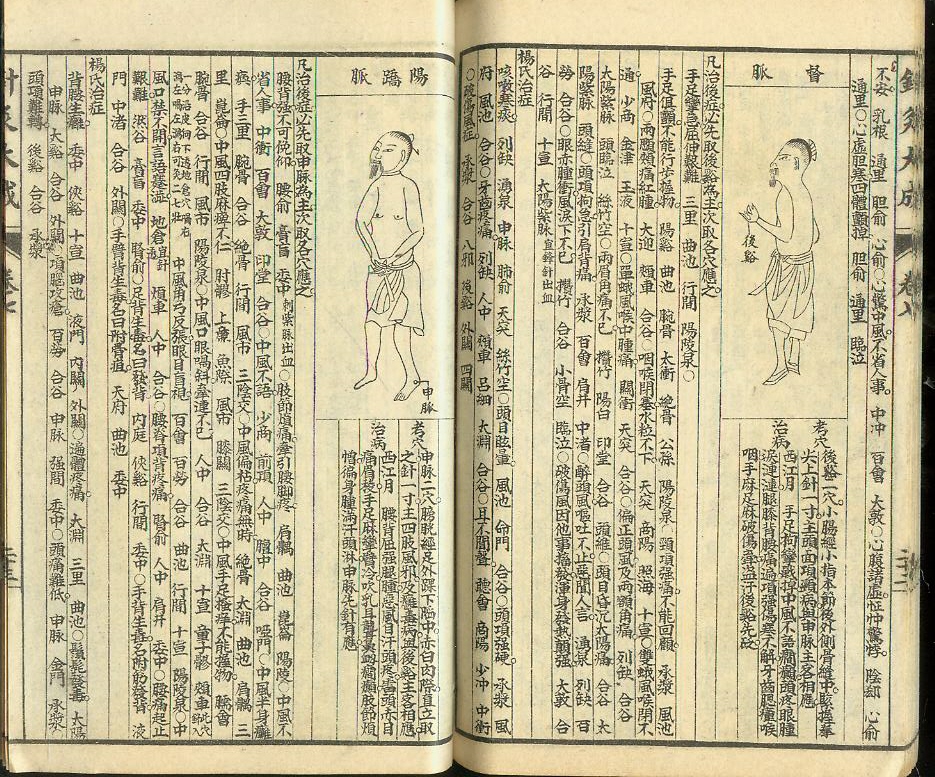 不安 乳根 通里 胆俞 心俞○心驚中風不省人事 中沖 百會 大敦○心臟諸虛怔忡驚悸 陰郄 心俞
通里○心虛胆寒四體顫掉 胆俞 通里 臨泣
督脈
後谿
考穴
後谿二穴
治病
西江月 手足拘攣戰掉中風不語癇癲頭疼眼腫
淚漣漣腿膝背腰痛遍項強傷寒不解牙齒腮腫喉
咽手麻足麻破傷牽盜汗後谿先砭
凡治後症必先取後谿為主次取各穴應之
手足攣急屈伸艱難 三里 曲池 行間 陽陵泉○
手足俱顫不能行步握物 陽谿 曲池 腕骨 太衝 絕骨 公孫 陽陵泉○頸項強痛不能回顧 承漿 風池
風府○兩顋頰痛紅腫 大迎 頰車 合谷○咽喉閉塞水粒不下 天突 商陽 照海 十宣○雙蛾風喉閉不
通 少商 金津 玉液 十宣○單蛾風喉中腫痛 關衝 天突 合谷○偏正頭風及兩額角痛 列缺 合谷
太陽紫脈 頭臨泣 絲竹空○兩眉角痛不已 攢竹 陽白 印堂 合谷 頭維○頭目昏沉太陽痛 合谷 太
陽紫脈 頭縫○頭項拘急引肩背痛 承漿 百會 肩井 中渚○醉頭風嘔吐不止惡聞人言 湧泉 列缺 百
勞 合谷○眼赤腫衝風淚下不已 攢竹 合谷 小骨空 臨泣○破傷風因他事搐發渾身發熱顛強 大敦 合
谷 行間 十宣 太陽紫脈宜鋒針出血
楊氏治症
咳嗽寒痰 列缺 湧泉 申脈 肺俞 天突 絲竹空○頭目眩暈 風池 命門 合谷○頭項強硬 承漿 風
府 風池 合谷○牙齒疼痛 列缺 人中 頰車 呂細 太淵 合谷○耳不聞聲 聽會 商陽 少沖 中衝
○破傷風症 承漿 合谷 八邪 後谿 外關 四關
陽蹻脈
申脈
考穴
申脈二穴
治病
西江月 腰背屈強腿腫惡風自汗頭疼雷頭赤目
痛眉稜手足麻攣臂冷吹乳耳聾鼻衄癇癲肢節煩
憎徧身腫滿汗頭淋申脈先針有應
凡治後症必先取申脈為主次取各穴應之
腰背強不可俛仰 腰俞 膏肓 委中刺紫脈出血○肢節煩痛牽引腰腳疼 肩髃 曲池 崑崙 陽陵○中風不
省人事 中衝 百會 大敦 印堂 合谷○中風不語 少商 前頂 人中 膻中 合谷 啞門○中風半身癱
瘓 手三里 腕骨 合谷 絕骨 行間 風市 三陰交○中風偏枯疼痛無時 絕骨 太淵 曲池 肩髃 三
里 崑崙○中風四肢麻痹不仁 肘髎 上廉 魚際 風市 膝關 三陰交○中風手足搔痒不能握物 臑會
腕骨 合谷 行間 風市 陽陵泉○中風口眼喎斜牽連不已 人中 合谷 太淵 十宣 童子髎 頰車
中風角弓反張眼目盲視 百會 百勞 合谷 曲池 行間 十宣 陽陵泉○中
風口禁不開言語蹇澁 地倉宜針 頰車 人中 合谷○腰脊項背疼痛 腎俞 人中 肩井 委中○腰痛起止
艱難 然谷 膏肓 委中 腎俞○足背生毒名曰發背 內庭 俠谿 行間 委中○手背生毒名附筋發背 液
門 中渚 合谷 外關○手臂背生毒名曰附骨疽 天府 曲池 委中
楊氏治症
背胛生癰 委中 俠谿 十宣 曲池 液門 內關 外關○遍體疼痛 太淵 三里 曲池○鬢髭發毒 太陽
申脈 太谿 合谷 外關○項腦攻瘡 百勞 合谷 申脈 強間 委中○頭痛難低 申脈 金門 承漿○
頭項難轉 後谿 合谷 承漿